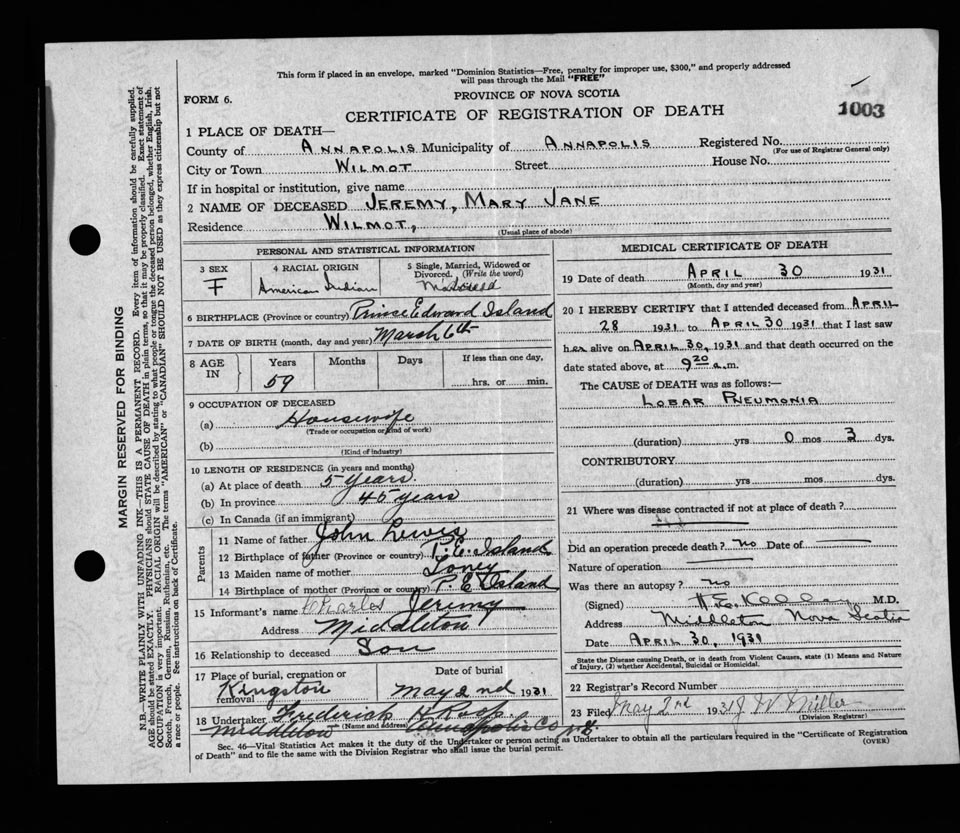 This form if placed in an envelope, marked "Dominion Statistics—Free, penalty for improper use, $300," and properly addressed
will pass through the Mail "FREE"
FORM 6.
PROVINCE OF NOVA SCOTIA
CERTIFICATE OF REGISTRATION OF DEATH
1003
1 PLACE OF DEATH—
County of ANNAPOLIS Municipality of ANNAPOLIS Registered No.
(For use of Registrar General only)
City or Town WILMOT Street House No.
If in hospital or institution, give name
2 NAME OF DECEASED JEREMY, MARY JANE
Residence WILMOT,
(Usual place of abode)
PERSONAL AND STATISTICAL INFORMATION
3 SEX
F
4 RACIAL ORIGIN
American Indian
5 Single, Married, Widowed or
Divorced. (Write the word)
Married
6 BIRTHPLACE (Province or country) Prince Edward Island
7 DATE OF BIRTH (month, day and year) March 6th
8 AGE
IN
Years
59
Months
Days
If less than one day,
hrs. or min.
9 OCCUPATION OF DECEASED
(a) Housewife
(Trade or occupation or kind of work)
(b)
(Kind of industry)
10 LENGTH OF RESIDENCE (in years and months)
(a) At place of death 5 years
(b) In province 45 years
(c) In Canada (if an immigrant)
Parents
11 Name of father John Lewis
12 Birthplace of father (Province or country) P. E. Island
13 Maiden name of mother Toney
14 Birthplace of mother (Province or country) P. E. Island
15 Informant's name Charles Jeremy
Address Middleton
16 Relationship to deceased Son
17 Place of burial, cremation or
removal Kingston
Date of burial
May 2nd 1931
18 Undertaker Frederick
(Name and address)
Middleton Annapolis Co N.S.
MEDICAL CERTIFICATE OF DEATH
19 Date of death APRIL 30 1931
(Month, day and year)
20 I HEREBY CERTIFY that I attended deceased from APRIL
28 1931 to APRIL 30 1931 that I last saw
her alive on APRIL 30, 1931 and that death occurred on the
date stated above, at 9 20 a.m.
The CAUSE of DEATH was as follows:—
LOBAR PNEUMONIA
(duration) yrs 0 mos 3 dys.
CONTRIBUTORY
(duration) yrs mos dys.
21 Where was disease contracted if not at place of death?
Did an operation precede death? no Date of
Nature of operation
Was there an autopsy? no
(Signed) M.D.
Address Middleton Nova Scotia
Date APRIL 30, 1931
State the Disease causing Death, or in death from Violent Causes, state (1) Means and Nature
of Injury, (2) whether Accidental, Suicidal or Homicidal.
22 Registrar's Record Number
23 Filed May 2nd 1931 J W Miller
(Division Registrar)
Sec. 46—Vital Statistics Act makes it the duty of the Undertaker or person acting as Undertaker to obtain all the particulars required in the "Certificate of Registration
of Death" and to file the same with the Division Registrar who shall issue the burial permit.
(OVER)
MARGIN RESERVED FOR BINDING
N.B.—WRITE PLAINLY WITH UNFADING INK—THIS IS A PERMANENT RECORD. Every item of information should be carefully supplied.
AGE should be stated EXACTLY. PHYSICIANS should STATE CAUSE OF DEATH in plain terms, so that it may be properly classified. Exact statement of
OCCUPATION is very important. RACIAL ORIGIN will be described by stating to what people or tongue the deceased person belonged, whether English, Irish,
Scotch, French, German, Russian, Ruthenian, etc. The terms "AMERICAN" or "CANADIAN" SHOULD NOT BE USED as they express citizenship but not
a race or people. See instructions on back of Certificate.